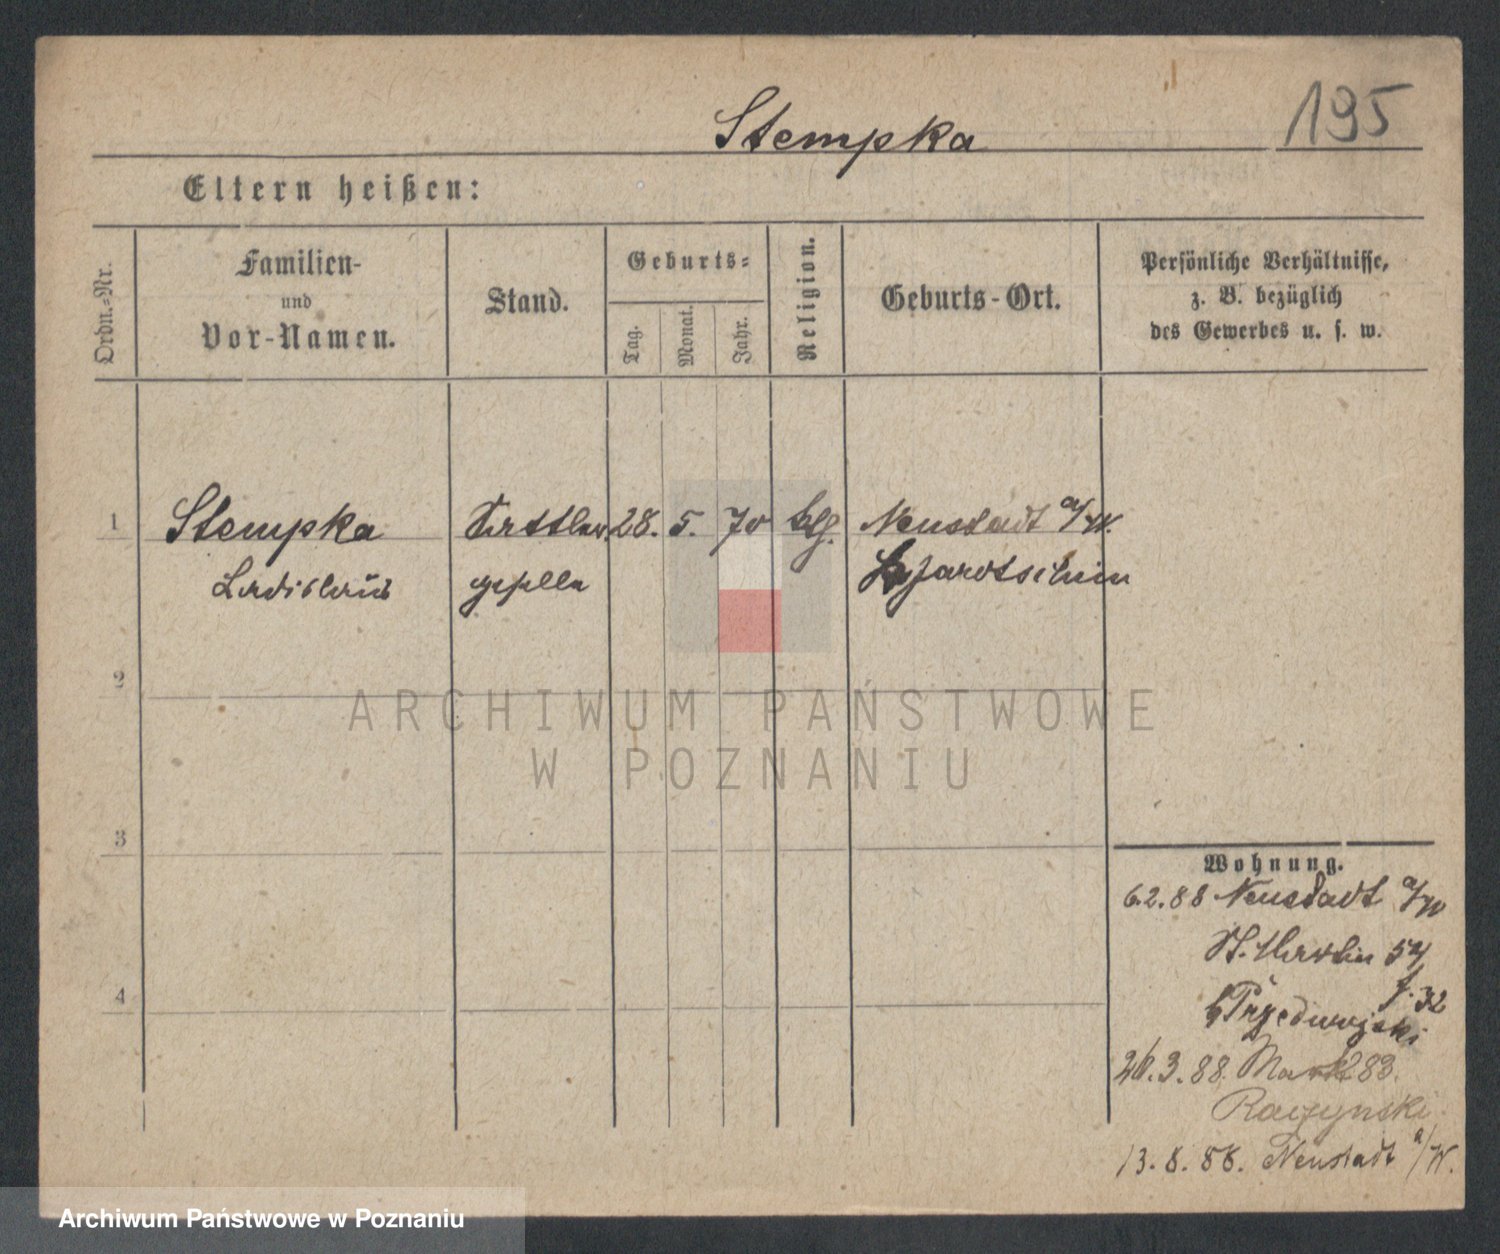 Stempka
195
Eltern heißen:
Ordn.-Nr.
Familien-
und
Vor-Namen.
Stand.
Geburts-
Tag.
Monat.
Jahr.
Religion.
Geburts-Ort.
Persönliche Verhältnisse,
z. B. bezüglich
des Gewerbes u. s. w.
1
Stempka
Ladislaus
Sattler
geselle
28.
5.
70
Neustadt a/W.
2
ARCHIWUM PAŃSTWOWE
W POZNANIU
3
Wohnung.
6.2.88 Neustadt a/W
St. Martin 54
f. 32
b Przedwojski
26.3.88. Markt 83.
Raczynski
4
13.8.88. Neustadt a/W.
Archiwum Państwowe w Poznaniu